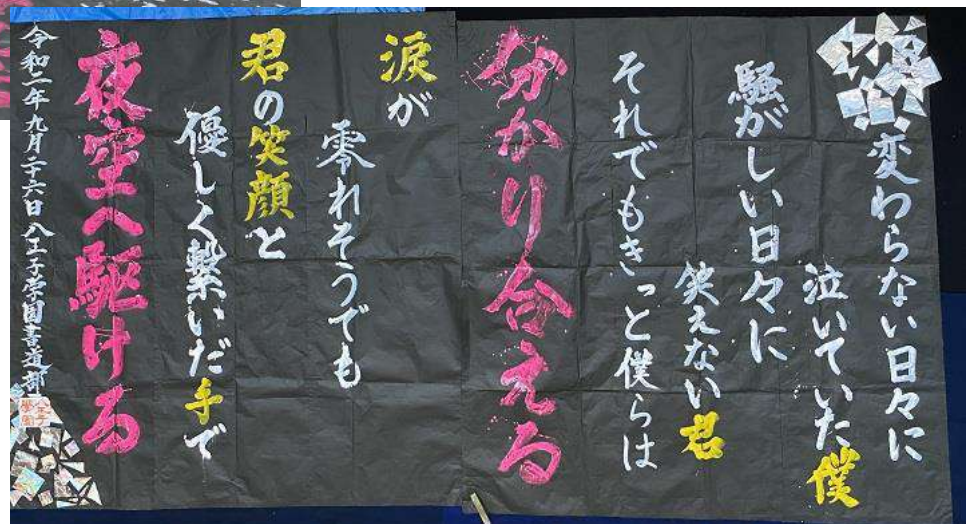 変わらない日々に
泣いていた僕
騒がしい日々に
笑えない君
それでもきっと僕らは
分かり合える
涙が
零れそうでも
君の笑顔と
優しく繋いだ手で
夜空へ駆ける
令和二年九月二十六日 八王子学園書道部